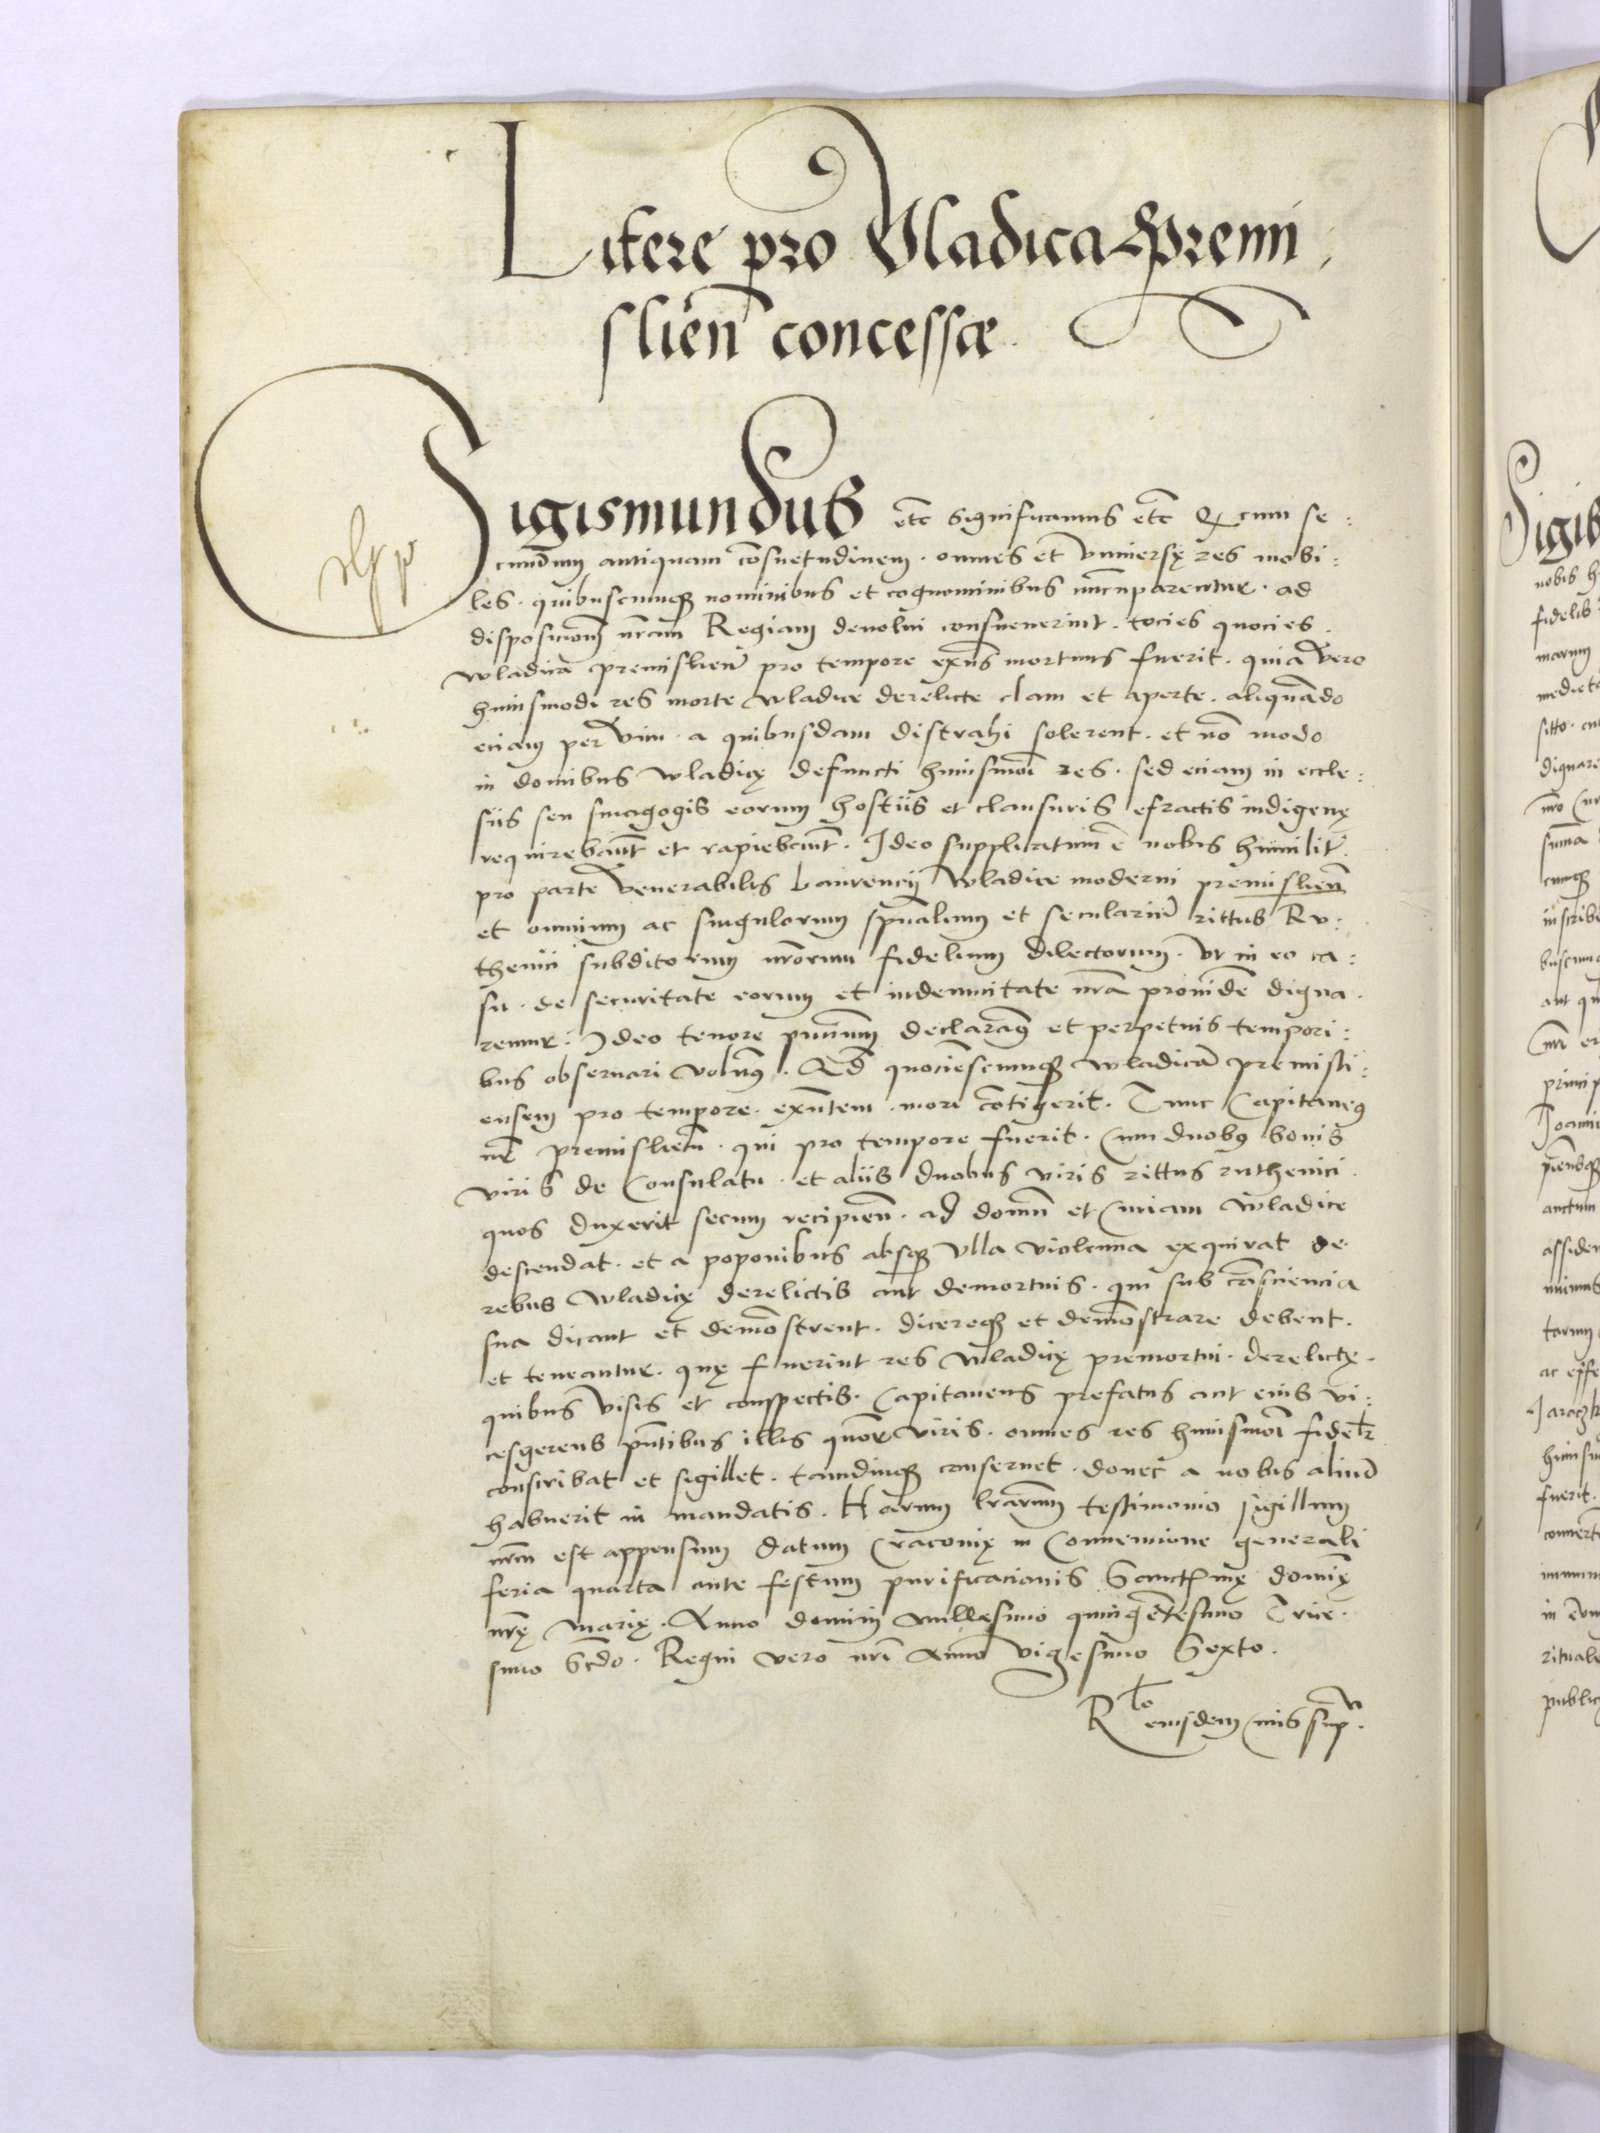 Litere pro Vladica Premi
slień concessæ.
Sigismundus etc̃ Significamus etc̃ Q cum se:
cundum antiquam cōsuetudinem. omnes et Vniuersę res mobi:
les. quibuscunq nominibus et cognominibus nuncuparentur. ad
disposicionē nrām Regiam deuolui consueuerint. tocies quocies
wladica premislień pro tempore exñs mortuus fuerit. quia Vero
huiusmodi res morte wladice derelicte clam et aperte. aliquādo
eciam per Vim. a quibusdam distrahi solerent. et nō modo
in domibus wladicę defuncti huiusmōi res. sed eciam in eccle:
siis seu sinagogis eorum hostiis et clausuris efractis indigenę
requirebānt et rapiebant. Ideo supplicatum ē nobis humilitr̃
pro parte Venerabilis Laurencij wladice moderni premislień
et omnium ac singulorum spũalium et seculariũ rittus Ru:
thenici subditorum nrōrum fidelium dilectorum. Vt in eo ca:
su. de securitate eorum et indemnitate nrā prouidē digna
remur. Ideo tenore pñtium declaramꝰ et perpetuis tempori:
bus obseruari Volumꝰ. Qd̃ quociēscunq wladicā premisli:
ensem pro tempore. exñtem. mori cōtigerit. Tunc Capitaneꝰ
nr̃ premislień. qui pro tempore fuerit. Cum duobꝰ bonis
viris de Consulatu. et aliis duobus viris rittus ruthenici
quos duxerit secum recipień. ad domū et Curiam wladice
descendat. et a poponibus absq Vlla Violencia exquirat de
rebus wladicę derelictis aut demortuis. qui sub cōsciencia
sua dicant et demōstrent. dicereq et demōstrare debent.
et teneantur. quę fuerint res wladicę premortui. derelictę.
quibus Visis et conspectis. Capitaneus prefatus aut eius vi:
cesgerens pñtibus illis quor̃ viris. omnes res huiusmōi fidelr̃
conscribat et sigillet. tamdiuq conseruet. donec a nobis aliud
habuerit in mandatis. Harum lrārum testimonio sigillum
nrm̃ est appensum Datum Cracouię in Conuencione generali
feria quarta ante festum purificacionis Sanctīmę domīę
nrę Marię. Anno domini Millesimo quingētesimo Trice.
simo Scd̃o. Regni vero nrī Anno Vigesimo Sexto.
Rlo eiusdem cuius supr̃.